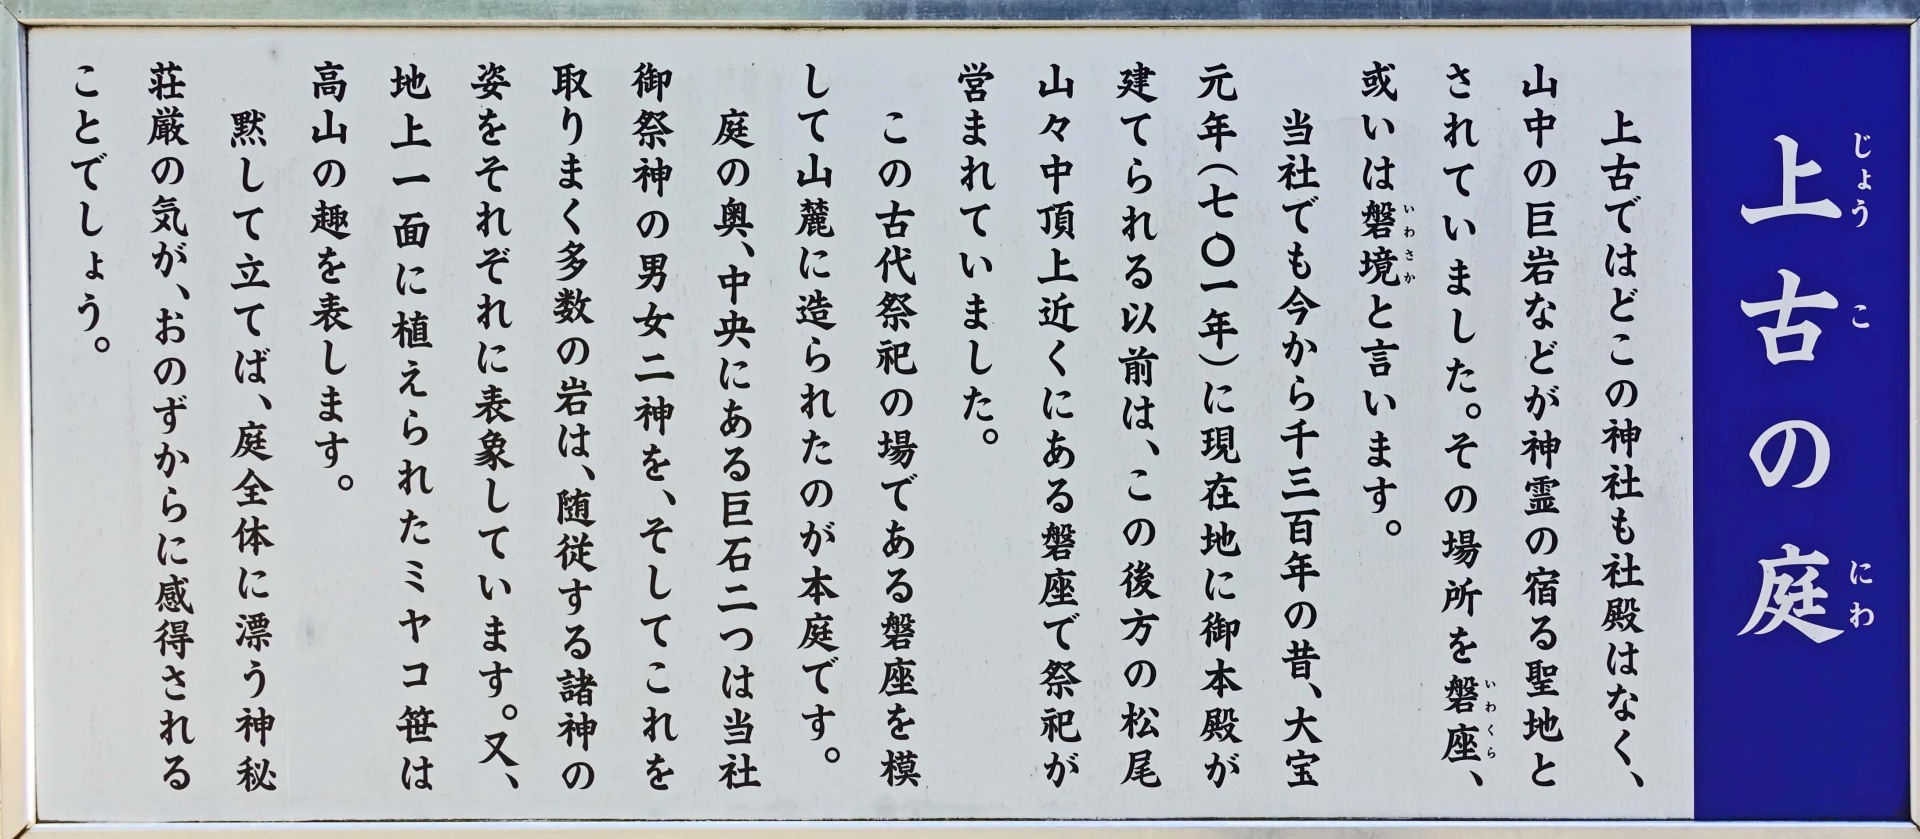 上古の庭
じょうこにわ
上古ではどこの神社も社殿はなく、
山中の巨岩などが神霊の宿る聖地と
されていました。その場所を磐座、
いわくら
或いは磐境と言います。
いわさか
当社でも今から千三百年の昔、大宝
元年(七〇一年)に現在地に御本殿が
建てられる以前は、この後方の松尾
山々中頂上近くにある磐座で祭祀が
営まれていました。
この古代祭祀の場である磐座を模
して山麓に造られたのが本庭です。
庭の奥、中央にある巨石二つは当社
御祭神の男女二神を、そしてこれを
取りまく多数の岩は、随従する諸神の
姿をそれぞれに表象しています。又、
地上一面に植えられたミヤコ笹は
高山の趣を表します。
黙して立てば、庭全体に漂う神秘
荘厳の気が、おのずからに感得される
ことでしょう。